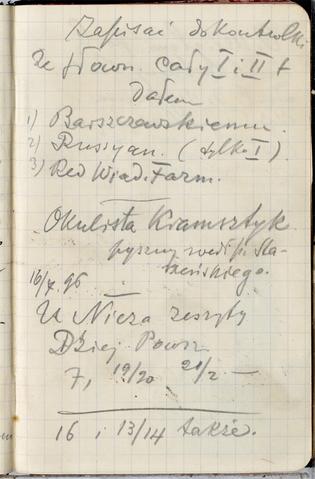 Zapisać do Kontrolki
Ze słown. cały I i II t
Dałem
1) Barszczewskiemu.
2) Russyan. (tylko I)
3) Red Wiad. Farm.
Okulista Kramsztyk
pyszny wedł. p. Sta-
szeńskiego.
16/7. 96
U Nieza zeszyty
Dziej Powsz
7, 19/20 21/2 —
16 i 13/14 także.